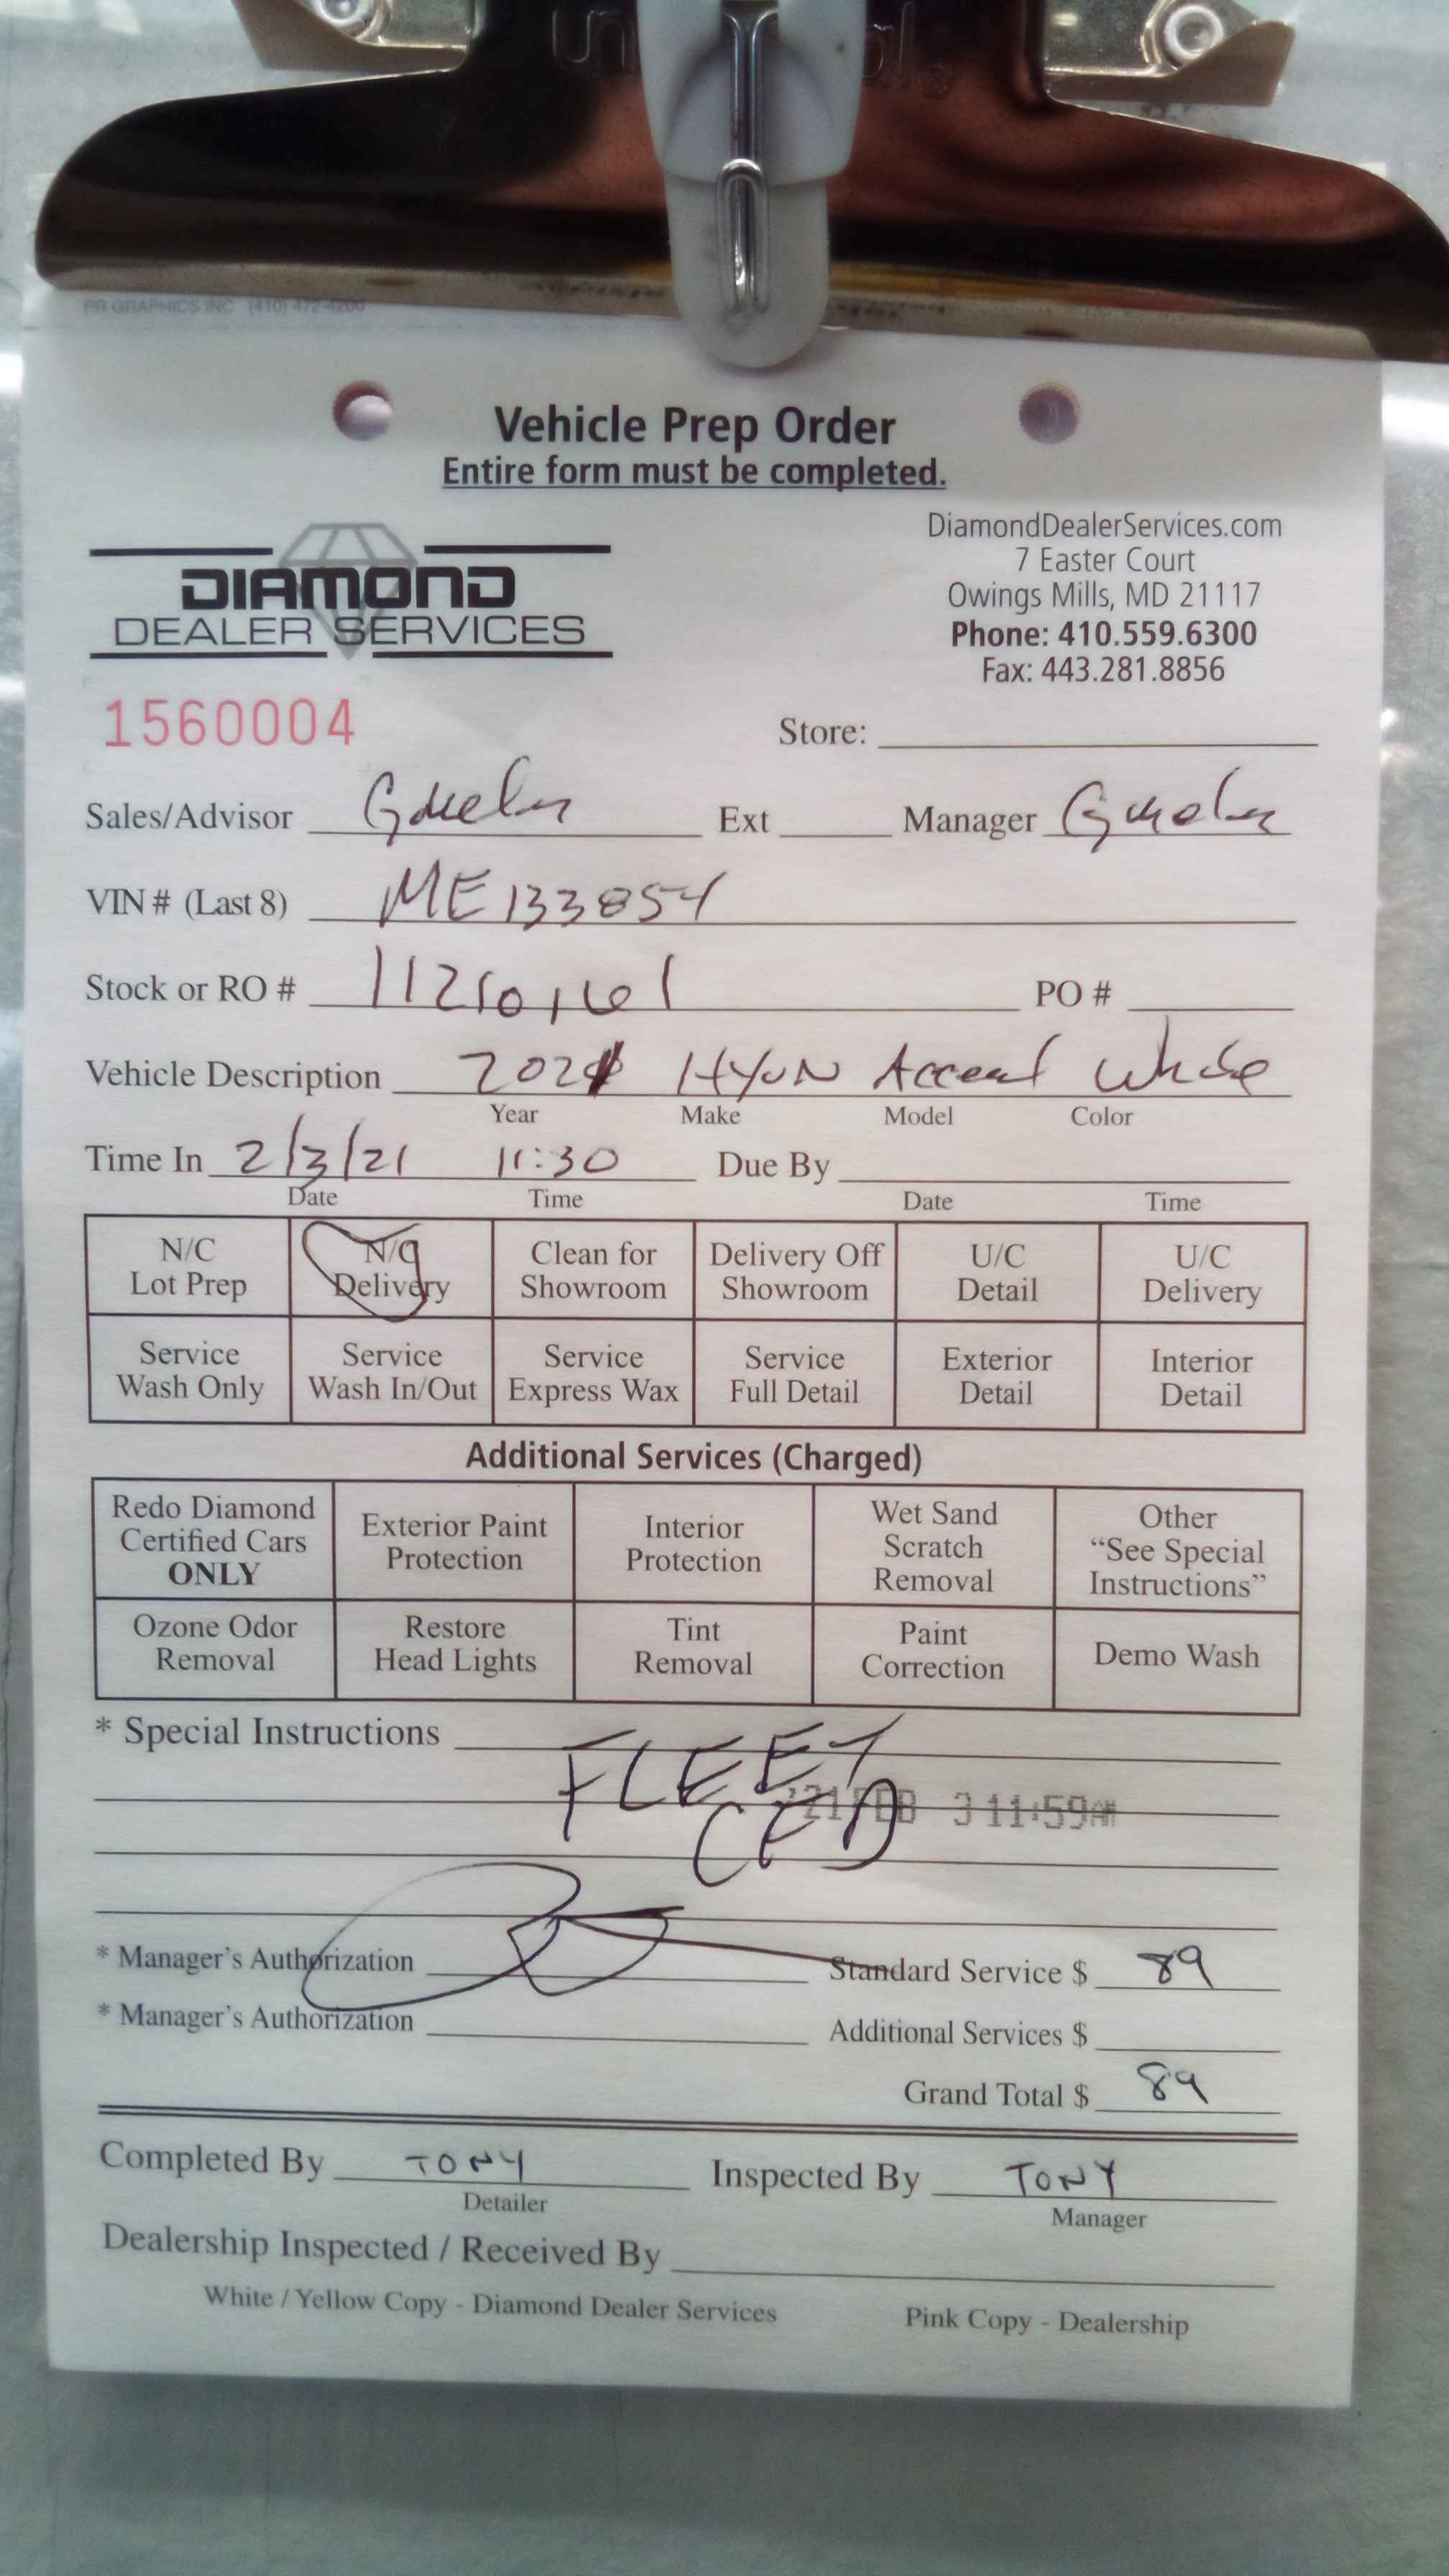 PR GRAPHICS INC (410) 472-4200
Vehicle Prep Order
Entire form must be completed.
DIAMOND
DEALER SERVICES
DiamondDealerServices.com
7 Easter Court
Owings Mills, MD 21117
Phone: 410.559.6300
Fax: 443.281.8856
1560004
Store:
Sales/Advisor Ext Manager
VIN # (Last 8) ME133854
Stock or RO # PO #
Vehicle Description 2021 HYUN Accent White
Year Make Model Color
Time In 2/3/21 11:30 Due By
Date Time Date Time
N/C
Lot Prep
N/C
Delivery
Clean for
Showroom
Delivery Off
Showroom
U/C
Detail
U/C
Delivery
Service
Wash Only
Service
Wash In/Out
Service
Express Wax
Service
Full Detail
Exterior
Detail
Interior
Detail
Additional Services (Charged)
Redo Diamond
Certified Cars
ONLY
Exterior Paint
Protection
Interior
Protection
Wet Sand
Scratch
Removal
Other
“See Special
Instructions”
Ozone Odor
Removal
Restore
Head Lights
Tint
Removal
Paint
Correction
Demo Wash
* Special Instructions
FLEET
'21 FEB 3 11:59AM
* Manager's Authorization Standard Service $ 89
* Manager's Authorization Additional Services $
Grand Total $ 89
Completed By TONY Inspected By TONY
Detailer Manager
Dealership Inspected / Received By
White / Yellow Copy - Diamond Dealer Services Pink Copy - Dealership